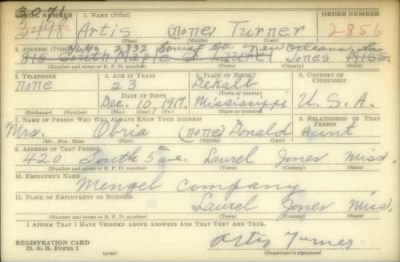 3071
SERIAL NUMBER 1. NAME (Print) ORDER NUMBER
3494 Artis (none) Turner 2856
(First) (Middle) (Last)
2. ADDRESS (Print) 2332 St. New Orleans, La.
Laurel Jones Miss.
(Number and street or R. F. D. number) (Town) (County) (State)
3. TELEPHONE 4. AGE IN YEARS 5. PLACE OF BIRTH 6. COUNTRY OF CITIZENSHIP
none 23 Dekalb
DATE OF BIRTH (Town or county)
Dec. 10, 1917 Mississippi U. S. A.
(Exchange) (Number) (Mo.) (Day) (Yr.) (State or country)
7. NAME OF PERSON WHO WILL ALWAYS KNOW YOUR ADDRESS 8. RELATIONSHIP OF THAT PERSON
Mrs. Obria (none) Donald aunt
(Mr., Mrs., Miss) (First) (Middle) (Last)
9. ADDRESS OF THAT PERSON
420 South 5 ave. Laurel Jones Miss.
(Number and street or R. F. D. number) (Town) (County) (State)
10. EMPLOYER'S NAME
Mengel Company
11. PLACE OF EMPLOYMENT OR BUSINESS
Laurel Jones Miss.
(Number and street or R. F. D. number) (Town) (County) (State)
I AFFIRM THAT I HAVE VERIFIED ABOVE ANSWERS AND THAT THEY ARE TRUE.
REGISTRATION CARD
D. S. S. Form 1 Artis Turner
(Registrant's signature)